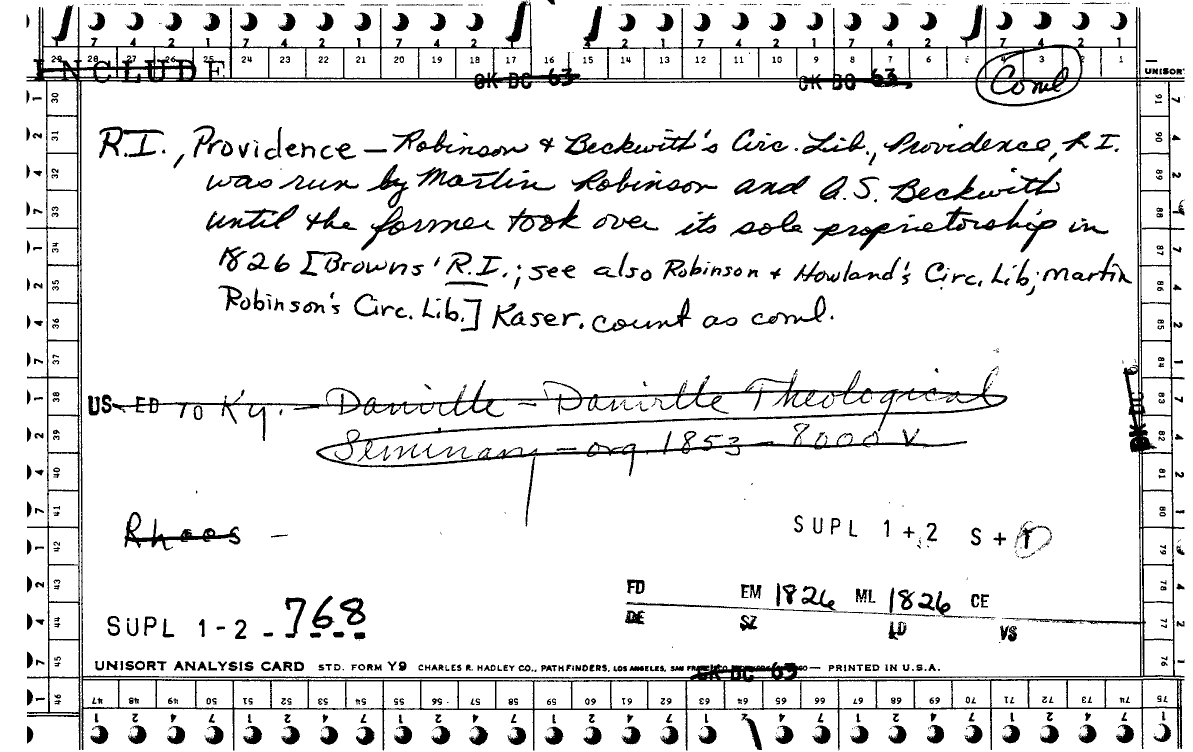 7 4 2 1 7 4 2 1 7 4 2 1 7 4 2 1 7 4 2 1 7 4 2 1 7 4 2 1
29 28 27 26 25 24 23 22 21 20 19 18 17 16 15 14 13 12 11 10 9 8 7 6 5 4 3 2 1
INCLUDE
CK DC 63 CK DC 63
Coml
UNISORT
R.I., Providence — Robinson & Beckwith's Circ. Lib., Providence, R.I.
was run by Martin Robinson and A.S. Beckwith
until the former took over its sole proprietorship in
1826 [Browns' R.I.; see also Robinson & Howland's Circ. Lib; Martin
Robinson's Circ. Lib.] Kaser. count as coml.
US ED TO Ky. — Danville — Danville Theological
Seminary — org. 1853 — 8000 v
Rhoos —
SUPL 1+2 S + T
FD EM 1826 ML 1826 CE
DE SZ LD VS
SUPL 1-2 - 768
UNISORT ANALYSIS CARD STD. FORM Y9 CHARLES R. HADLEY CO., PATHFINDERS, LOS ANGELES, SAN — PRINTED IN U.S.A.
CK DC 63
30 31 32 33 34 35 36 37 38 39 40 41 42 43 44 45 46
91 90 89 88 87 86 85 84 83 82 81 80 79 78 77 76 75
47 48 49 50 51 52 53 54 55 56 57 58 59 60 61 62 63 64 65 66 67 68 69 70 71 72 73 74 75